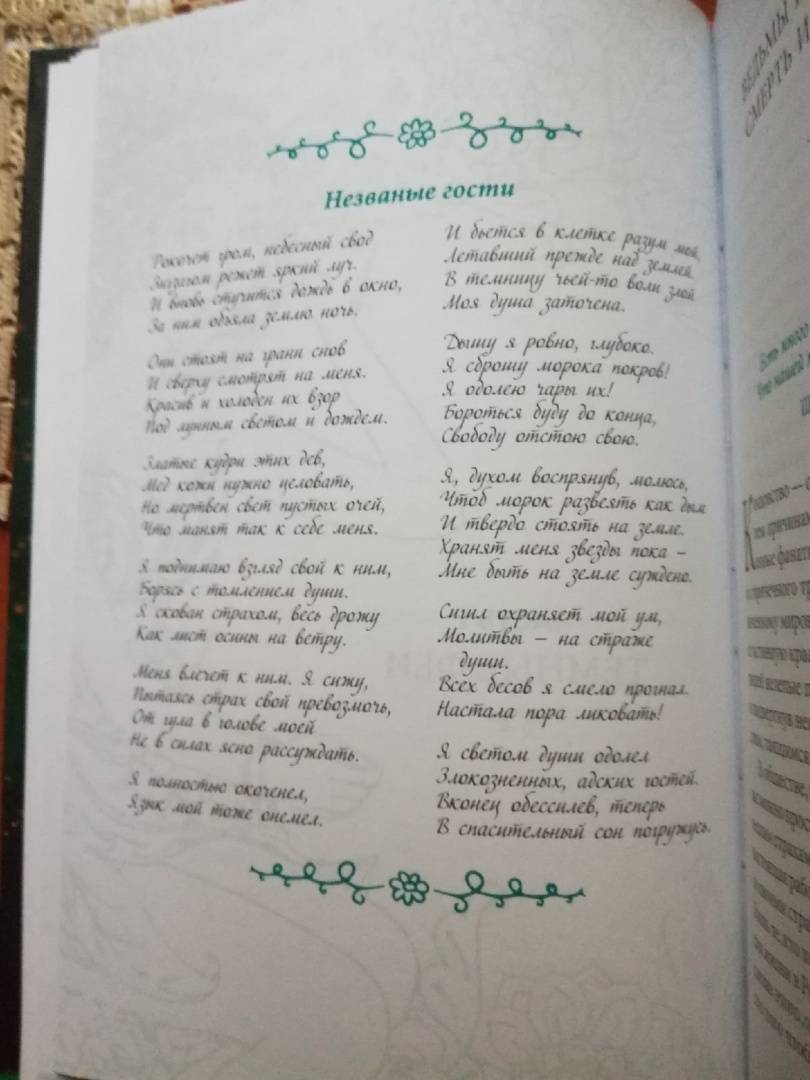 Незваные гости
Рокочет гром, небесный свод
Зигзагом режет яркий луч.
И вновь стучится дождь в окно,
За ним объяла землю ночь.
Они стоят на грани снов
И сверху смотрят на меня.
Красив и холоден их взор
Под лунным светом и дождем.
Златые кудри этих дев,
Мед кожи нужно целовать,
Но мертвен свет пустых очей,
Что манят так к себе меня.
Я поднимаю взгляд свой к ним,
Борясь с томлением души.
Я скован страхом, весь дрожу
Как лист осины на ветру.
Меня влечет к ним. Я сижу,
Пытаясь страх свой превозмочь,
От гула в голове моей
Не в силах ясно рассуждать.
Я полностью окоченел,
Язык мой тоже онемел.
И бьется в клетке разум мой,
Летавший прежде над землей.
В темницу чьей-то воли злой
Моя душа заточена.
Дышу я ровно, глубоко.
Я сброшу морока покров!
Я одолею чары их!
Бороться буду до конца,
Свободу отстою свою.
Я, духом воспрянув, молюсь,
Чтоб морок развеять как дым
И твердо стоять на земле.
Хранят меня звезды пока –
Мне быть на земле суждено.
Сигил охраняет мой ум,
Молитвы – на страже
души.
Всех бесов я смело прогнал.
Настала пора ликовать!
Я светом души одолел
Злокозненных, адских гостей.
Вконец обессилев, теперь
В спасительный сон погружусь.
ВЕДЬМЫ
СМЕРТЬ И
Есть много
Что нашей